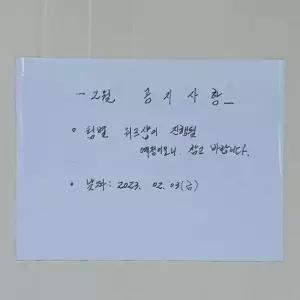 - 2월 공지사항 -
• 팀별 워크샵이 진행될
예정이오니, 참고 바랍니다.
• 날짜: 2023. 02. 03(금)